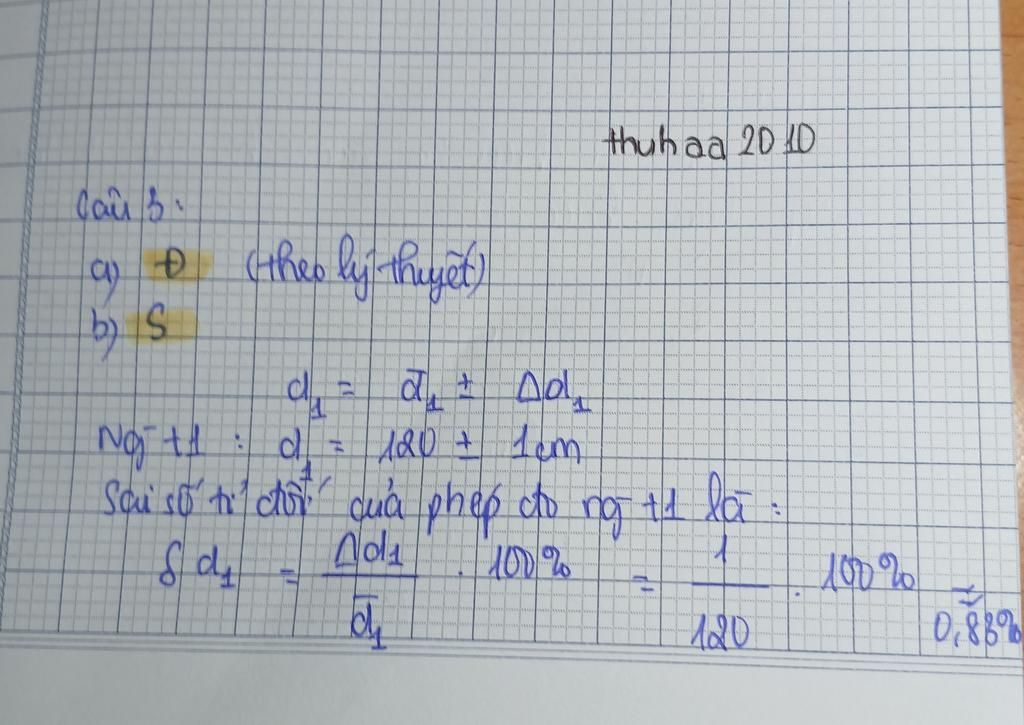 thuhaa 2010
Câu 3:
a) Đ (theo lý thuyết)
b) S
d₁ = d̅₁ ± Δd₁
Ng t1 : d₁ = 120 ± 1cm
Sai số tỉ đối của phép đo ng t1 là :
δd₁ = Δd₁ / d̅₁ . 100% = 1 / 120 . 100% ≃ 0,83%